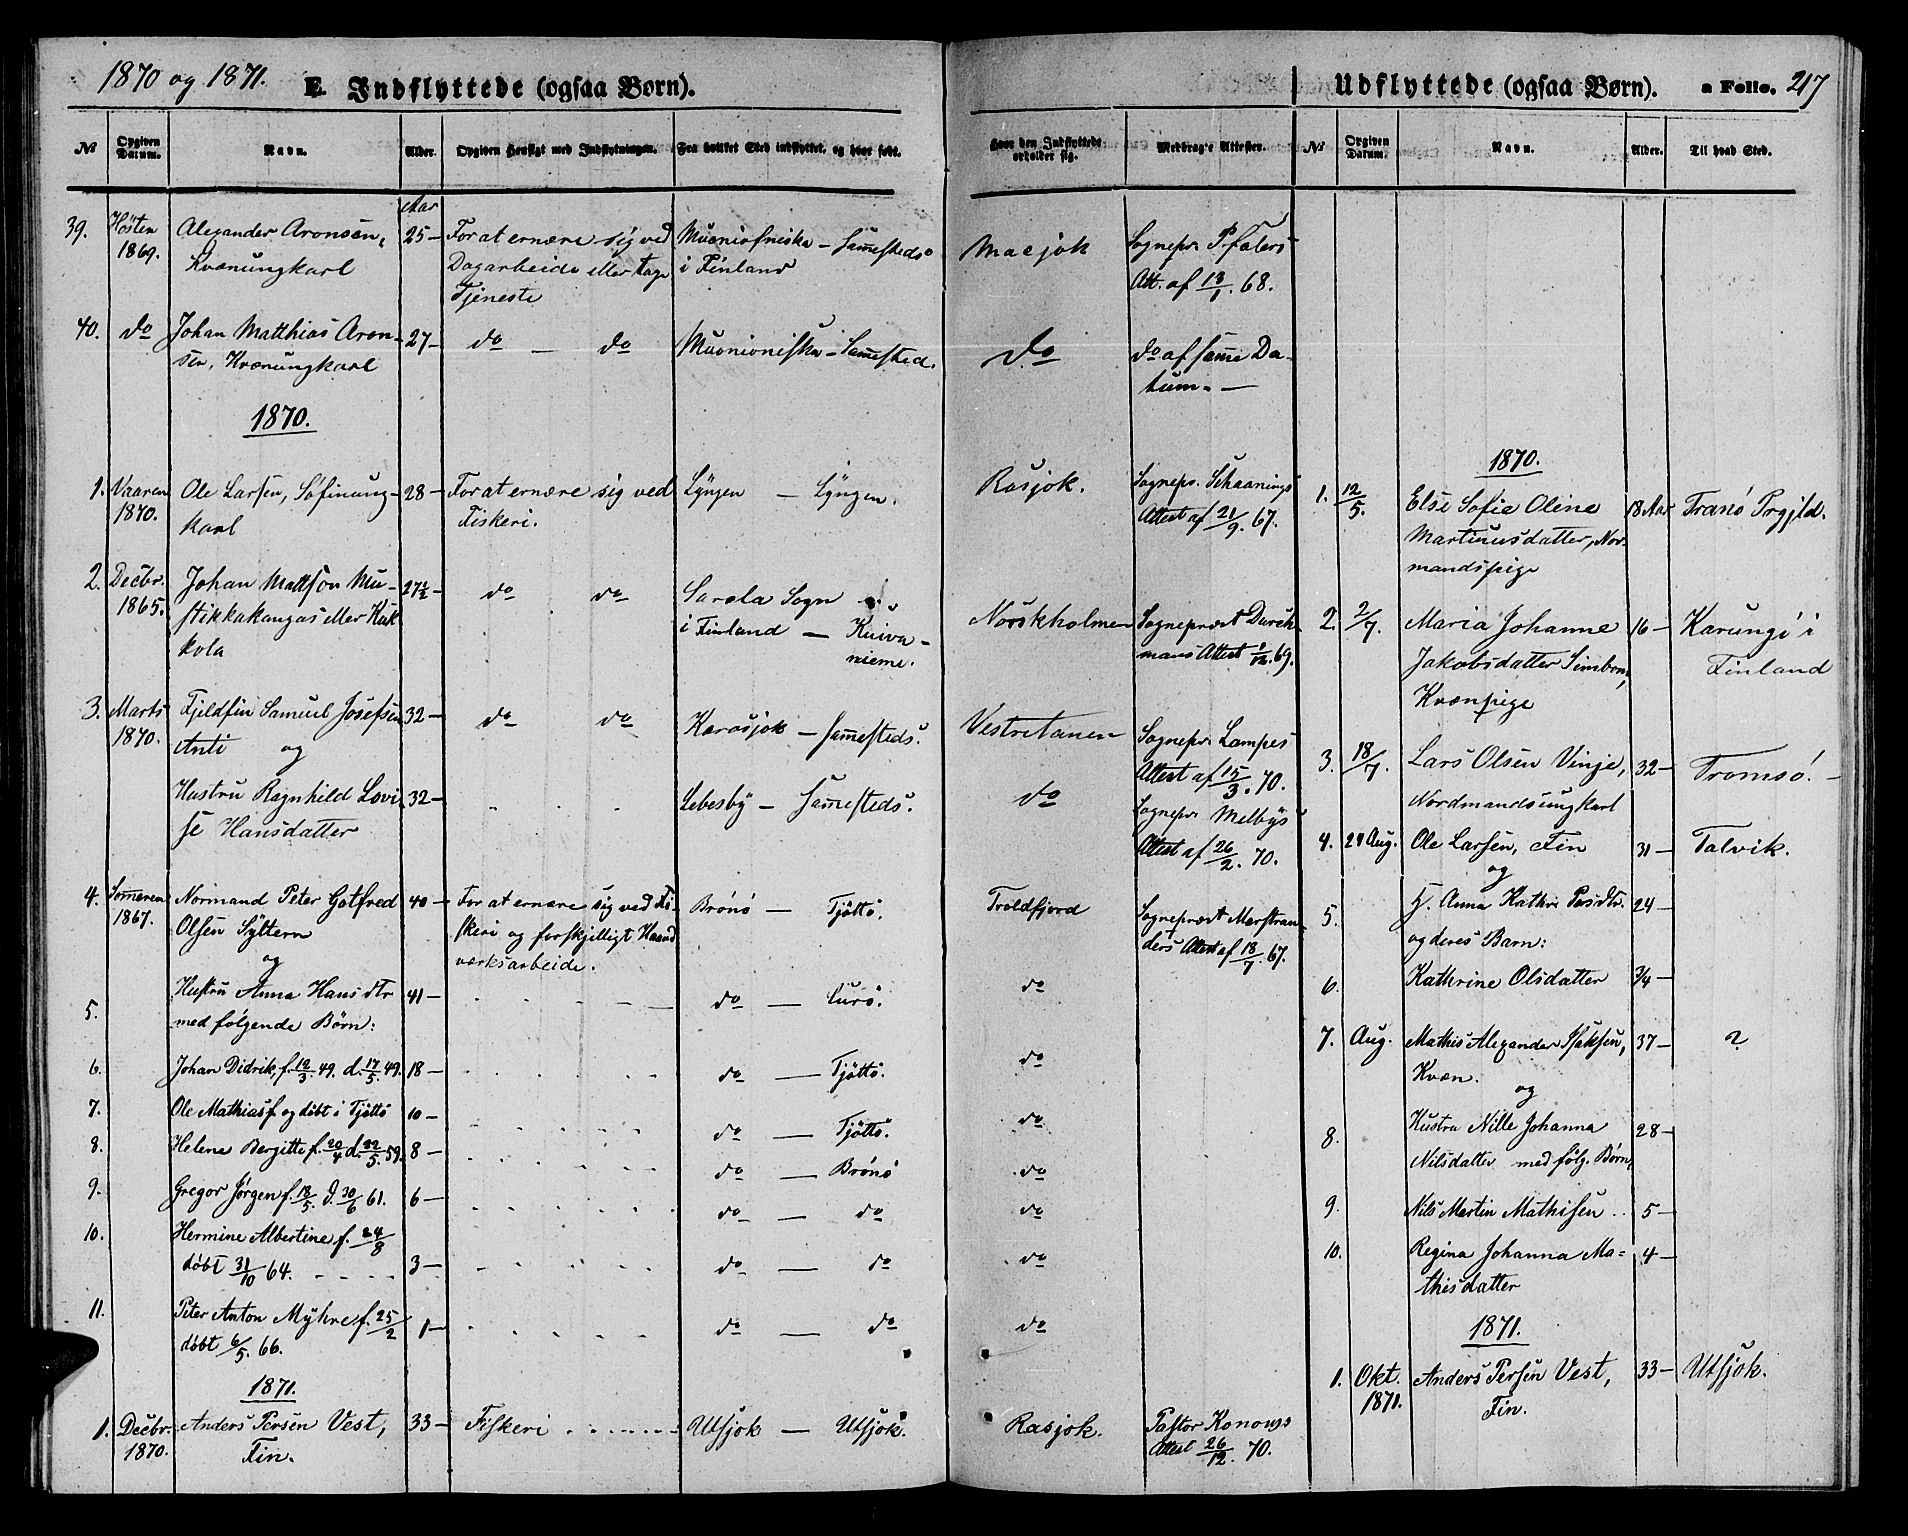 1870 og 1871. E. Indflyttede (ogsaa Børn).
№ Opgiven Datum. Navn. Alder. Opgiven Hensigt med Indflytningen. Fra hvilket Sted indflyttet, og hvor født.
Aar
39. Hösten Alexander Aronsen, 25 – For at ernære sig ved Muoniofniska – Samesteds
1869. Kvænungkarl Dagarbeide eller tage i Finland
Tjeneste
40. do Johan Matthias Aron- 27 – do – do Muonioniska – Samested.
sen, Kvænungkarl
1870.
1. Vaaren Ole Larsen, Söfinung- 28 – For at ernære sig ved Lyngen – Lyngen.
1870. karl Fiskeri.
2. Decbr. Johan Mattson Mu- 27½ – do do Sarola Sogn
1865. stikkakangas eller Kuk- i Finland – Kuiva-
kola nieme.
3. Marts Fjeldfin Samuel Josefsen 32 – do do Karasjok – samesteds.
1870. Anti og
Hustru Ragnhild Lovi- 32 – Lebesby – samesteds.
se Hansdatter
4. Someren Normand Peter Gotfred 40 – For at ernære sig ved Fi- Brönö – Tjöttö.
1867. Olsen Syltern skeri og forskjelligt Haand
og værksarbeide.
5. Hustru Anna Hansdtr 41 – do – Lurö.
med følgende Børn:
6. Johan Didrik, f. 12/3. 49. d. 17/5. 49. 18 – do – Tjöttö.
7. Ole Mathias f. og döbt i Tjöttö 10 – do – Tjöttö.
8. Helene Bergitte f. 20/4 d. 22/5. 59. 8 – do – Brönö
9. Gregor Jörgen f. 18/5. d. 30/6 61. 6 – do – do
10. Hermine Albertine f. 24/8
döbt 31/10 64. 3 – do – do
11. Peter Anton Myhre f. 25/2 1 – do – do
döbt 6/5. 66.
1871.
1. Decbr. Anders Persen Vest, 33 – Fiskeri Utsjok – Utsjok.
1870. Fin.
Udflyttede (ogsaa Børn). a Folio. 217
Hvor den Indflyttede opholder sig. Medbragte Attester. № Opgiven Datum. Navn. Alder. Til hvad Sted.
Masjok Sognepr.
Att. af 13/1. 68.
do do af same Da-
tum. –
1870.
Rasjok. Sognepr. Schaanings 1. 12/5. Else Sofie Oline 18 Aar Tranö Prgjld.
Attest af 21/9. 67. Martinusdatter, Nor-
mandspige
Norskholmen Sogneprest Durch- 2. 2/7. Maria Johanne 16 – Karungi i
mans Attest 1/12. 69. Jakobsdatter Simbon, Finland
Kvænpige
Vestretanen Sognepr. Lampes 3. 18/7. Lars Olsen Vinje, 32 – Tromsö. –
Attest af 15/3. 70. Nordmandsungkarl
do Sognepr. Melbys
Attest af 26/2. 70. 4. 29 Aug. Ole Larsen, Fin 31 – Talvik.
og
Troldfjord Sogneprest Marstran- 5. H. Anna Kathr. Persdtr. 24 –
ders Attest af 18/7. 67. og deres Barn:
do 6. Kathrine Olsdatter ¾ –
do 7. Aug. Mathis Alexander Isaksen, 37 – ?
Kvæn. og
do 8. Hustru Nille Johanna 28 –
do Nilsdatter med følg. Børn,
do 9. Nils Martin Mathisen 5 –
do 10. Regina Johanna Ma- 4 –
thisdatter
do 1871.
1. Okt. Anders Persen Vest, 33 – Utsjok.
1871. Fin.
Rasjok. Pastor Konows
Attest 26/12. 70.